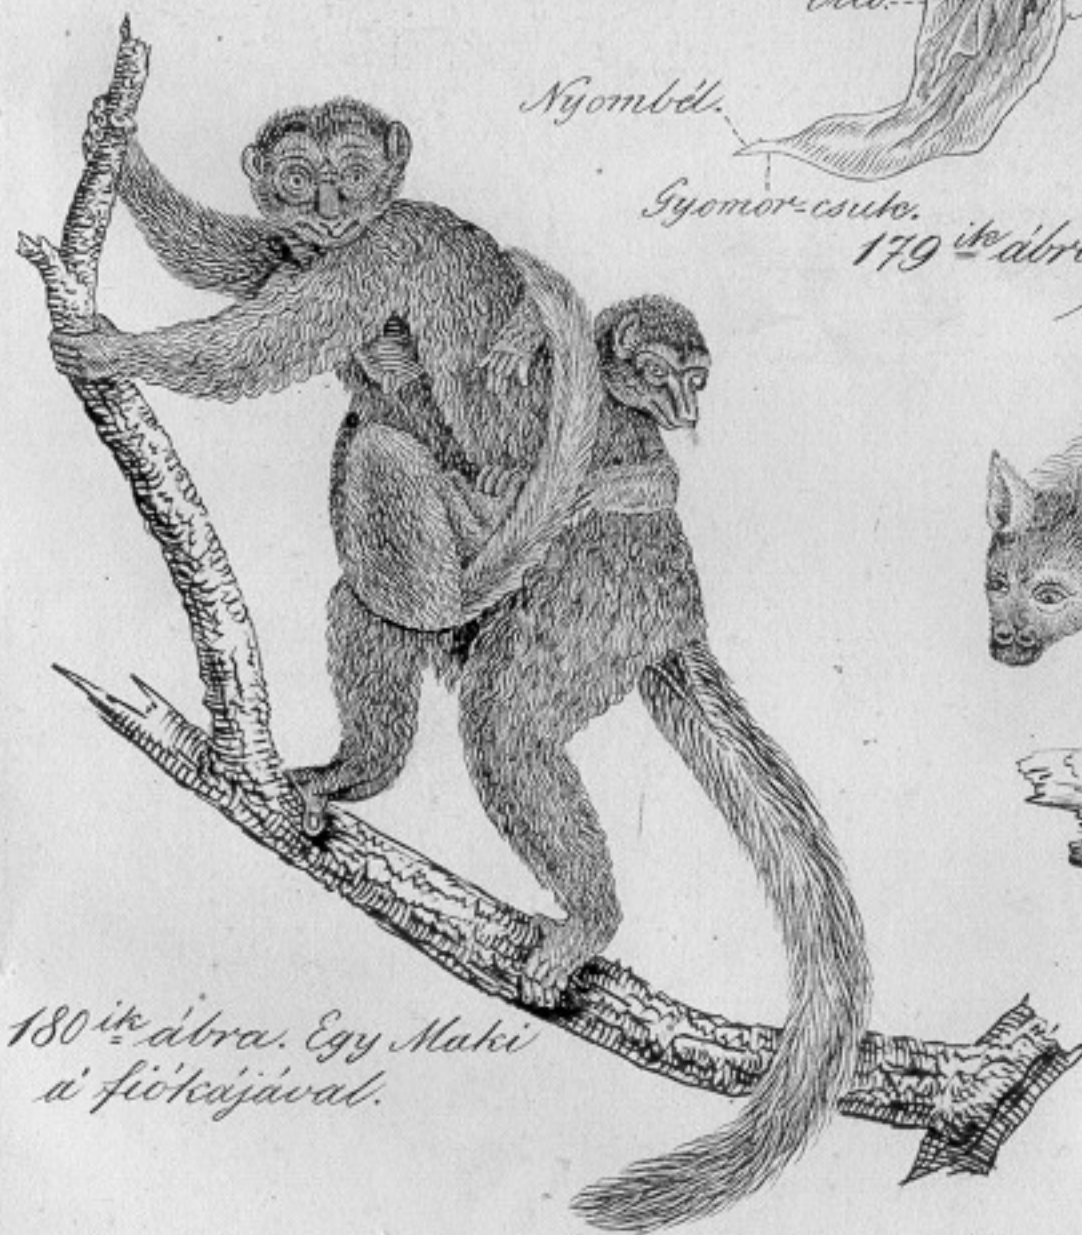 Nyombél.
Gyomor-csuk.
179 ik ábra
180 ik ábra. Egy Maki
a' fiókájával.